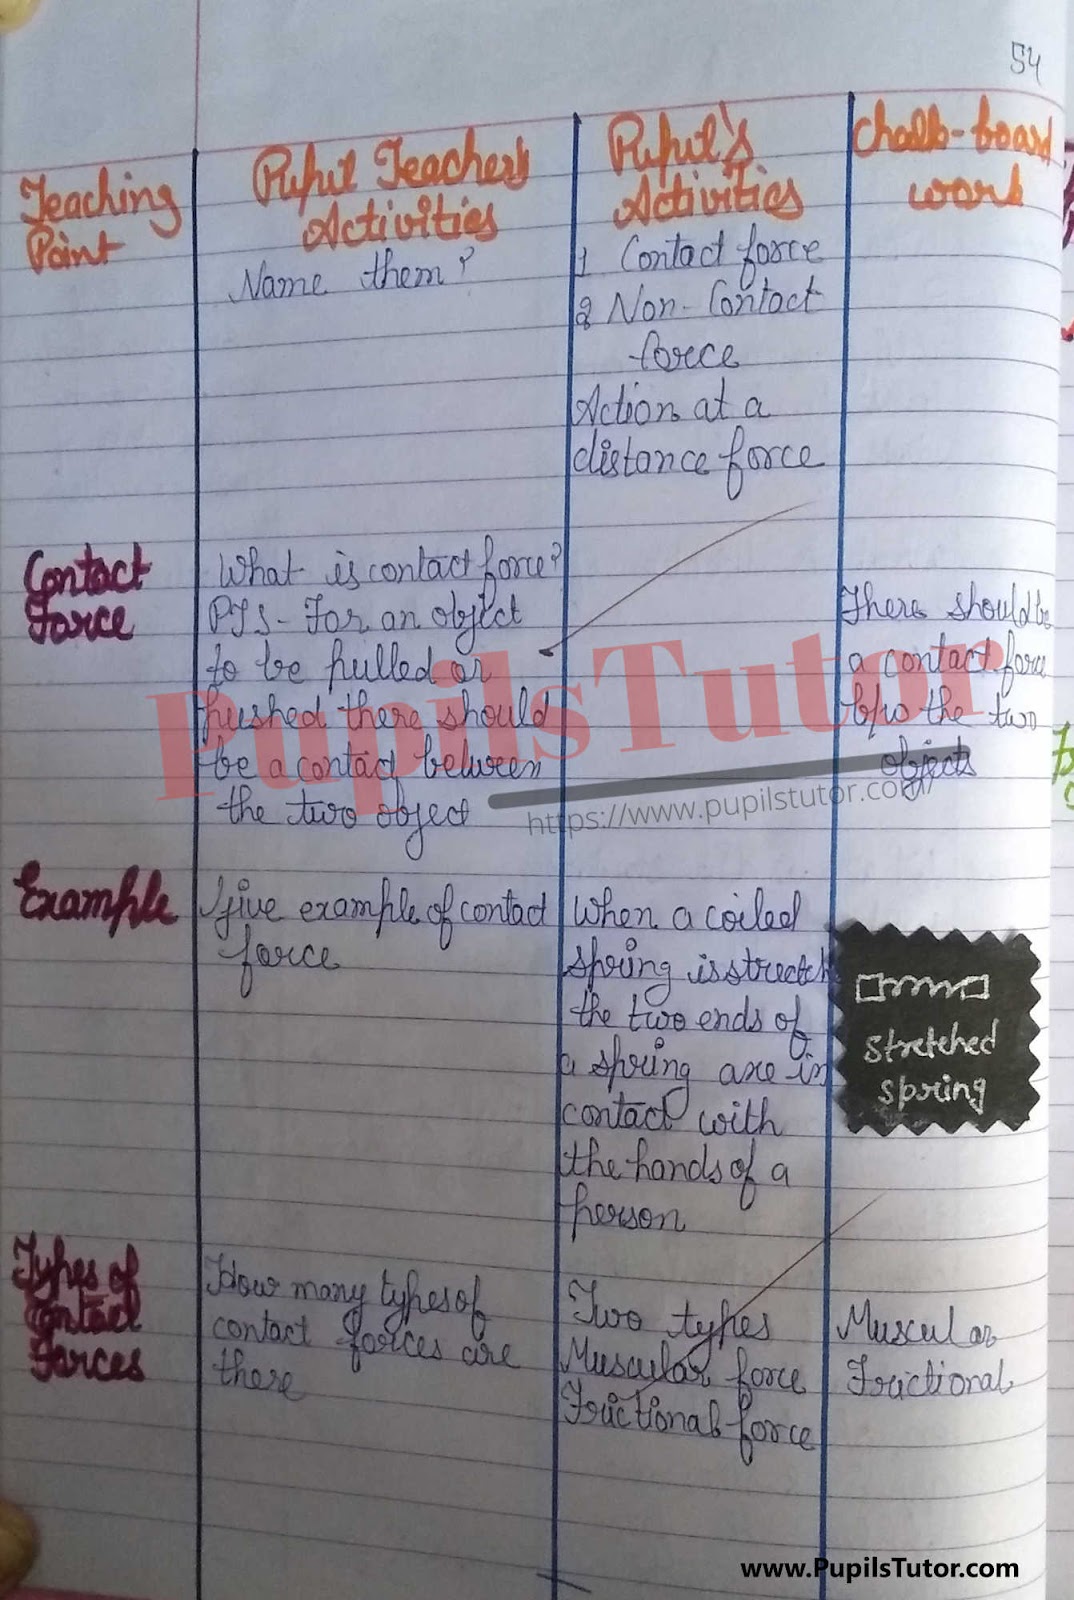 54
Teaching
Point
Pupil Teacher's
Activities
Pupil's
Activities
Chalk-board
work
Name them?
1 Contact force
2 Non-Contact
force
Action at a
distance force
Contact
Force
What is contact force?
PTS- For an object
to be pulled or
pushed there should
be a contact between
the two object
There should be
a contact force
b/w the two
objects
PupilsTutor
https://www.pupilstutor.com/
Example
give example of contact
force
When a coiled
spring is stretch
the two ends of
a spring are in
contact with
the hands of a
person
stretched
spring
Types of
Contact
Forces
How many types of
contact forces are
there
Two types
Muscular force
Frictional force
Muscular
Frictional
www.PupilsTutor.com